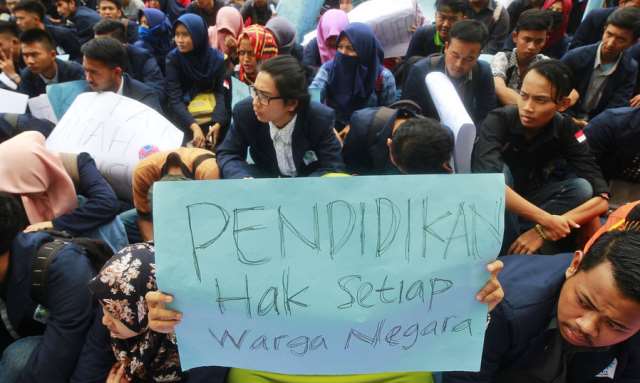 PENDIDIKAN
Hak Setiap
Warga Negara